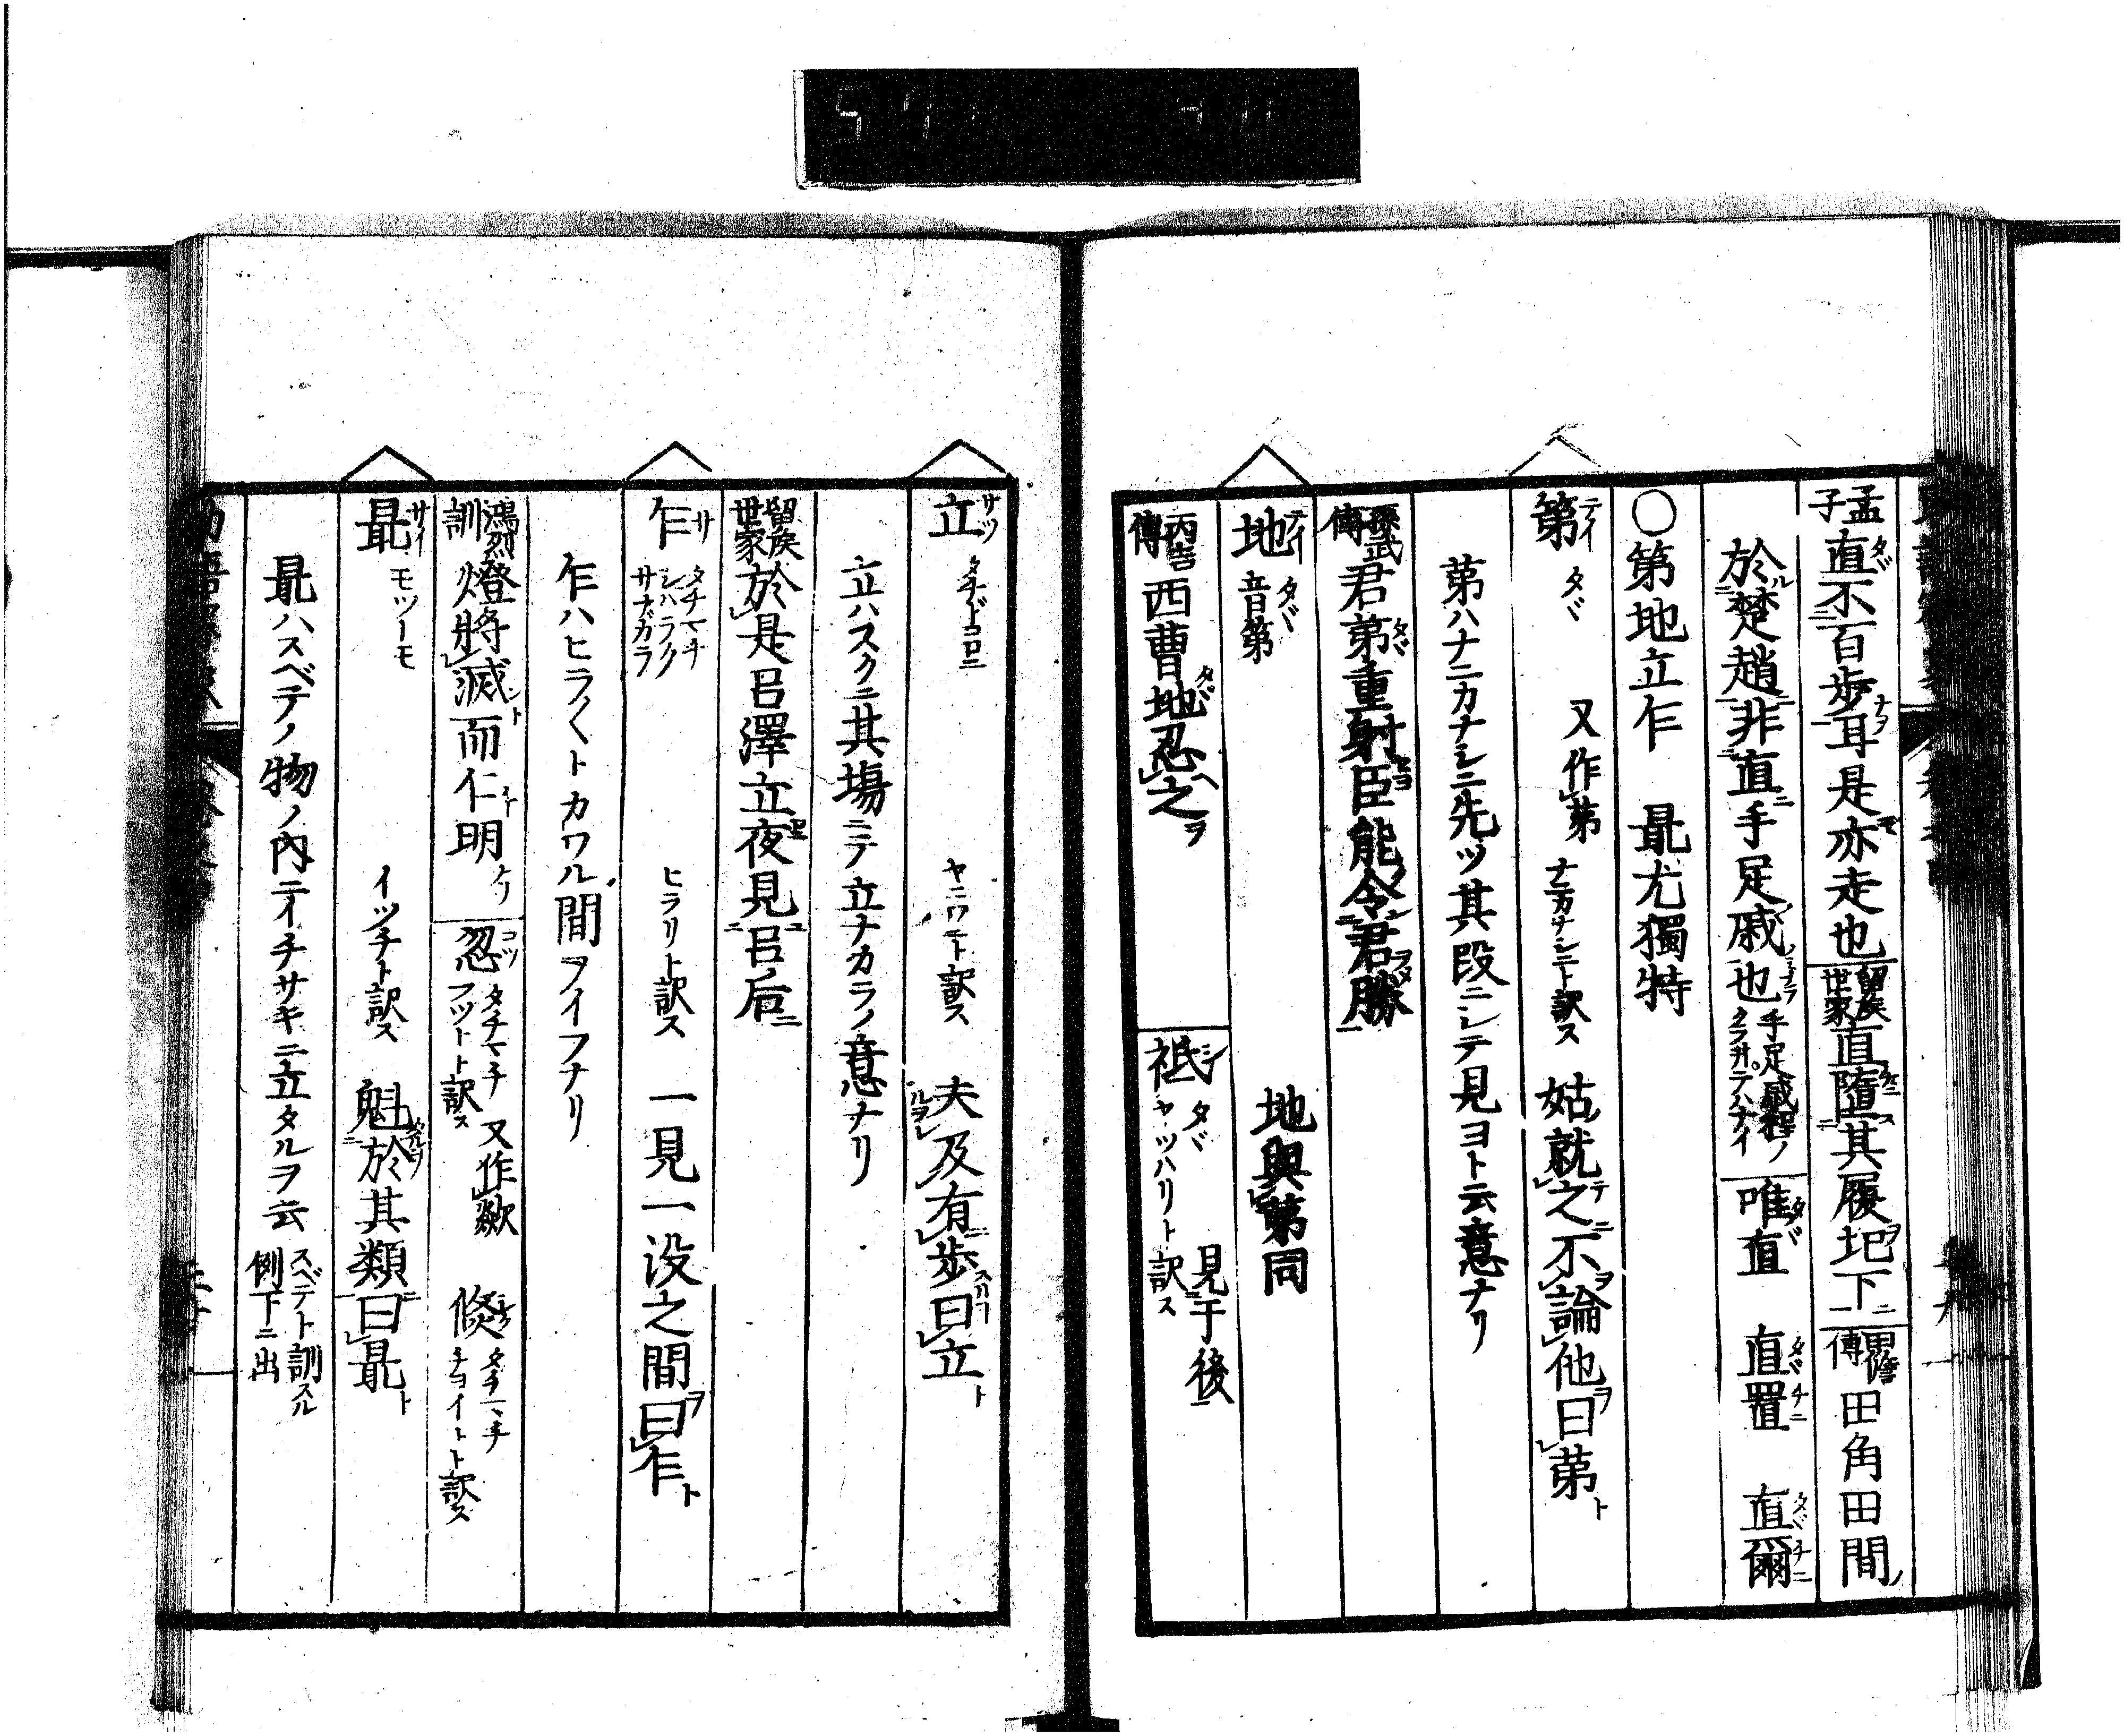 孟子 直不百歩耳是亦走也 留侯世家 直墮其履圯下 田儋傳 田角田間
於楚趙非直手足戚也 手足戚程ノクラ井テハナイ 唯直 直置 直爾
○第地立乍 最尤獨特
第 テイ タヾ 又作苐 ナニカナシニト訳ス 姑就之不論他曰苐
苐ハナニカナシニ先ツ其段ニシテ見ヨト云意ナリ
孫武傳 君苐重射臣能令君勝
地 テイ タヾ 音第 地與第同
丙吉傳 西曹地忍之 祗 シ タヾ ヤッハリト訳ス 見于後
立 サツ タチドコロニ ヤニワニト訳ス 夫及有歩曰立
立ハスクニ其塲ニテ立ナカラノ意ナリ
留侯世家 於是呂澤立夜見呂后
乍 サ タチマチ シハラク サナガラ ヒラリト訳ス 一見一没之間曰乍
乍ハヒラ〱トカワル間ヲイフナリ
鴻烈訓 燈將滅而乍明 忽 コツ タチマチ フツトト訳ス 又作歘 倐 タチマチ チヨイトト訳ス
最 サイ モツーモ イッチト訳ス 魁於其類曰最
最ハスベテノ物ノ內ニイチサキニ立タルヲ云 スベテト訓スル側下ニ出